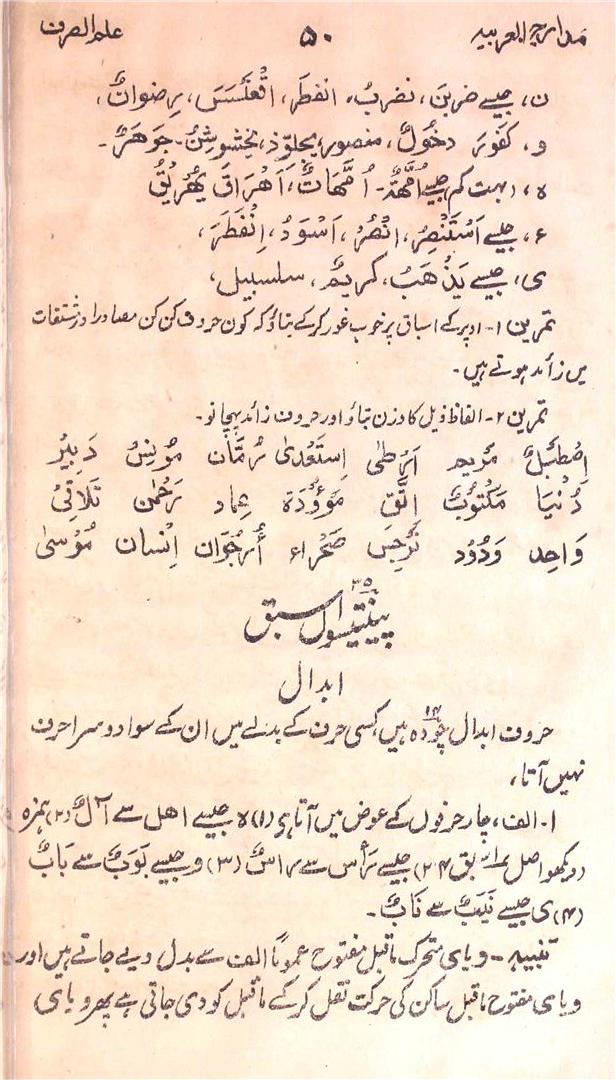 مدارج العربیہ ۵۰ علم الصرف
ن، جیسے ضربن، نضربُ، انفطَر، اقْعَنْسَسَ، رِضوانٌ،
و، کَفوَرَ دخُولٌ، منصور، یجلوّذ، یخشوشِنُ۔ جوھَرٌ۔
ہ، بہت کم جیسے اُمَّهَةٌ۔ اُمَّهَاتٌ، اَهْرَاقَ یُهْرِیْقُ
ء، جیسے اَسْتَنْصِرُ، انْصُرُ، اَسْوَدُ، اِنْفَطَرَ،
ی، جیسے یَذْهَبُ، کریمٌ، سلسبیل،
تمرین ۱۔ اوپر کے اسباق پر خوب غور کرکے بتاؤ کہ کون حروف کن کن مصادر اور مشتقات
میں زائد ہوتے ہیں۔
تمرین ۲۔ الفاظ ذیل کا وزن بتاؤ اور حروف زائد پہچانو۔
اِصْطَبْلٌ مَرْیم اَرْطٰی اِسْتَعْدیٰ رُمَّان مُوْنِسٌ دَبِیْرٌ
دُنْیَا مَکْتُوْبٌ اِتَّقِ مَوْؤُدَة عِماد رَحْمٰن تَلَاقِیْ
وَاحِد وَدُوْد نَرْجِسَ صَحْراء اُرْجُوَان اِنْسان مُوْسیٰ
پینتیسواں سبق ۳۵
ابدال
حروف ابدال چودہ ۱۴ ہیں، کسی حرف کے بدلے میں ان کے سوا دوسرا حرف
نہیں آتا،
۱۔ الف، چار حرفوں کے عوض میں آتا ہی (۱) ہ جیسے اهل سے آلٌ (۲) ہمزہ
(دیکھو اصل ۱ سبق ۲۴) جیسے رَأْس سے راسٌ (۳) و جیسے بَوَبٌ سے بَابٌ
(۴) ی جیسے نَیَبٌ سے نَابٌ۔
تنبیہ۔ و یا ی متحرک ماقبل مفتوح عمومًا الف سے بدل دیے جاتے ہیں اور
و یا ی مفتوح ماقبل ساکن کی حرکت نقل کرکے ماقبل کو دی جاتی ہے پھر و یا ی